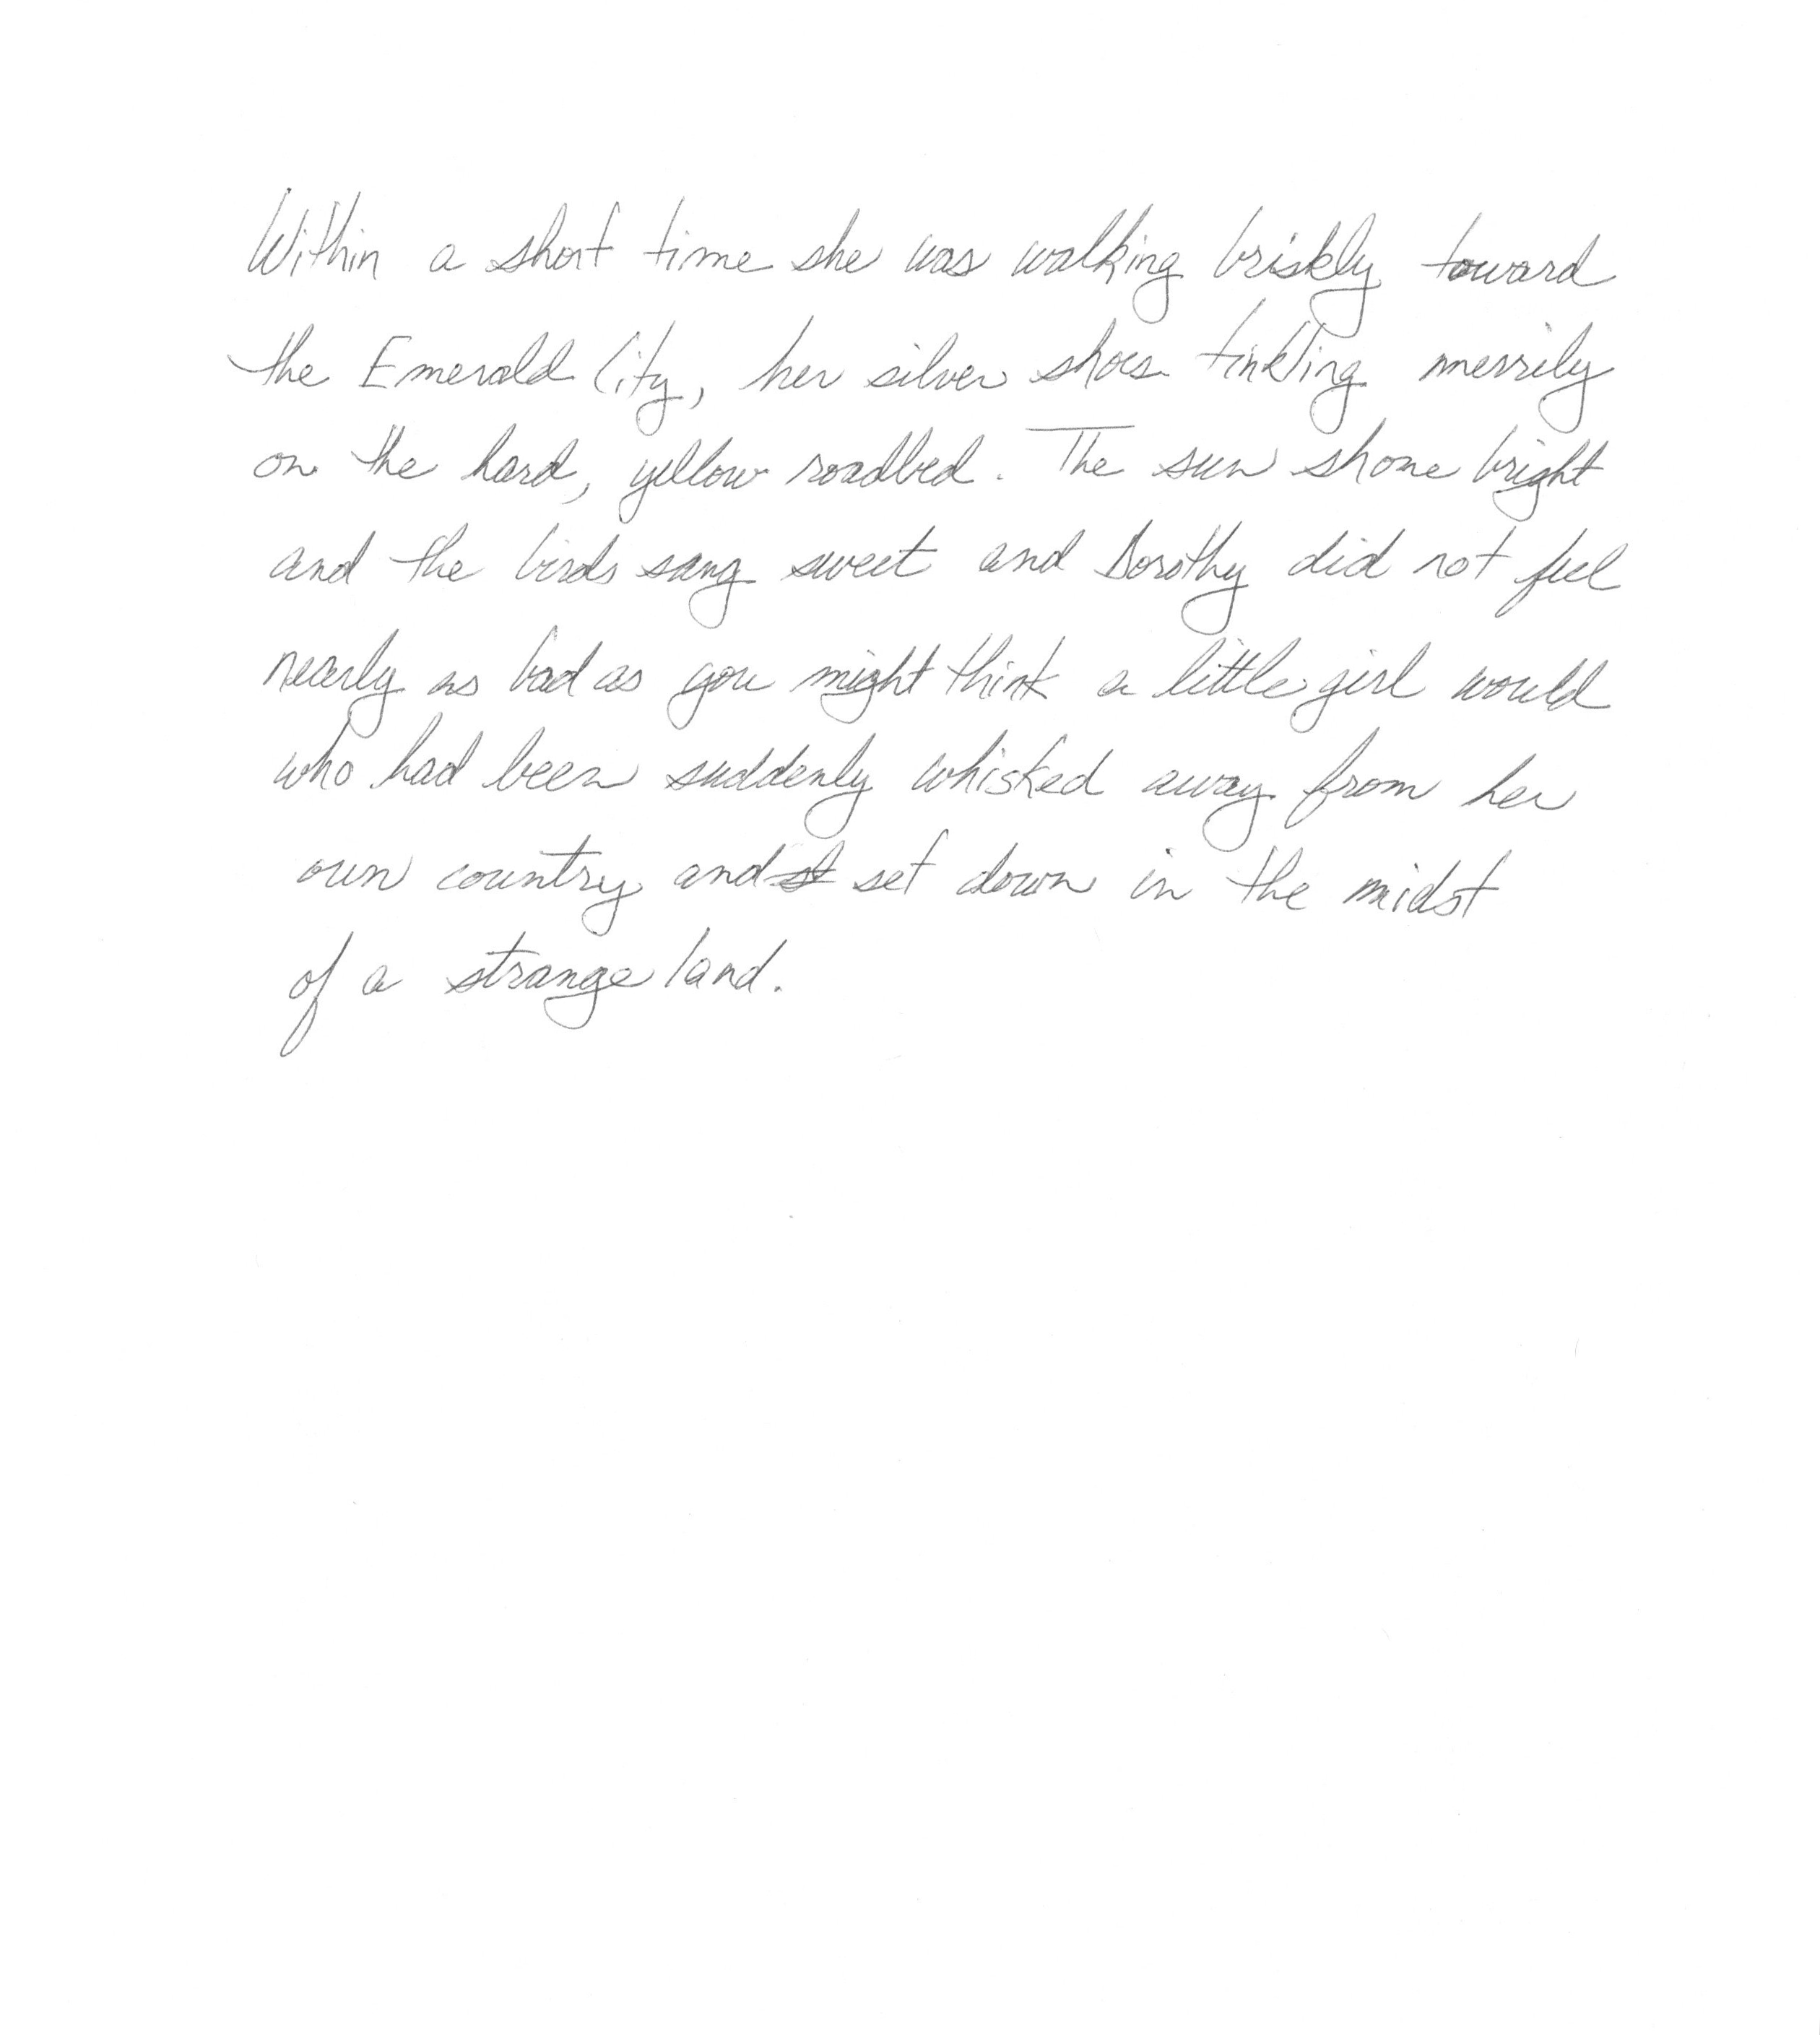 Within a short time she was walking briskly toward
the Emerald City, her silver shoes tinkling merrily
on the hard, yellow roadbed. The sun shone bright
and the birds sang sweet and Dorothy did not feel
nearly as bad as you might think a little girl would
who had been suddenly whisked away from her
own country and set down in the midst
of a strange land.